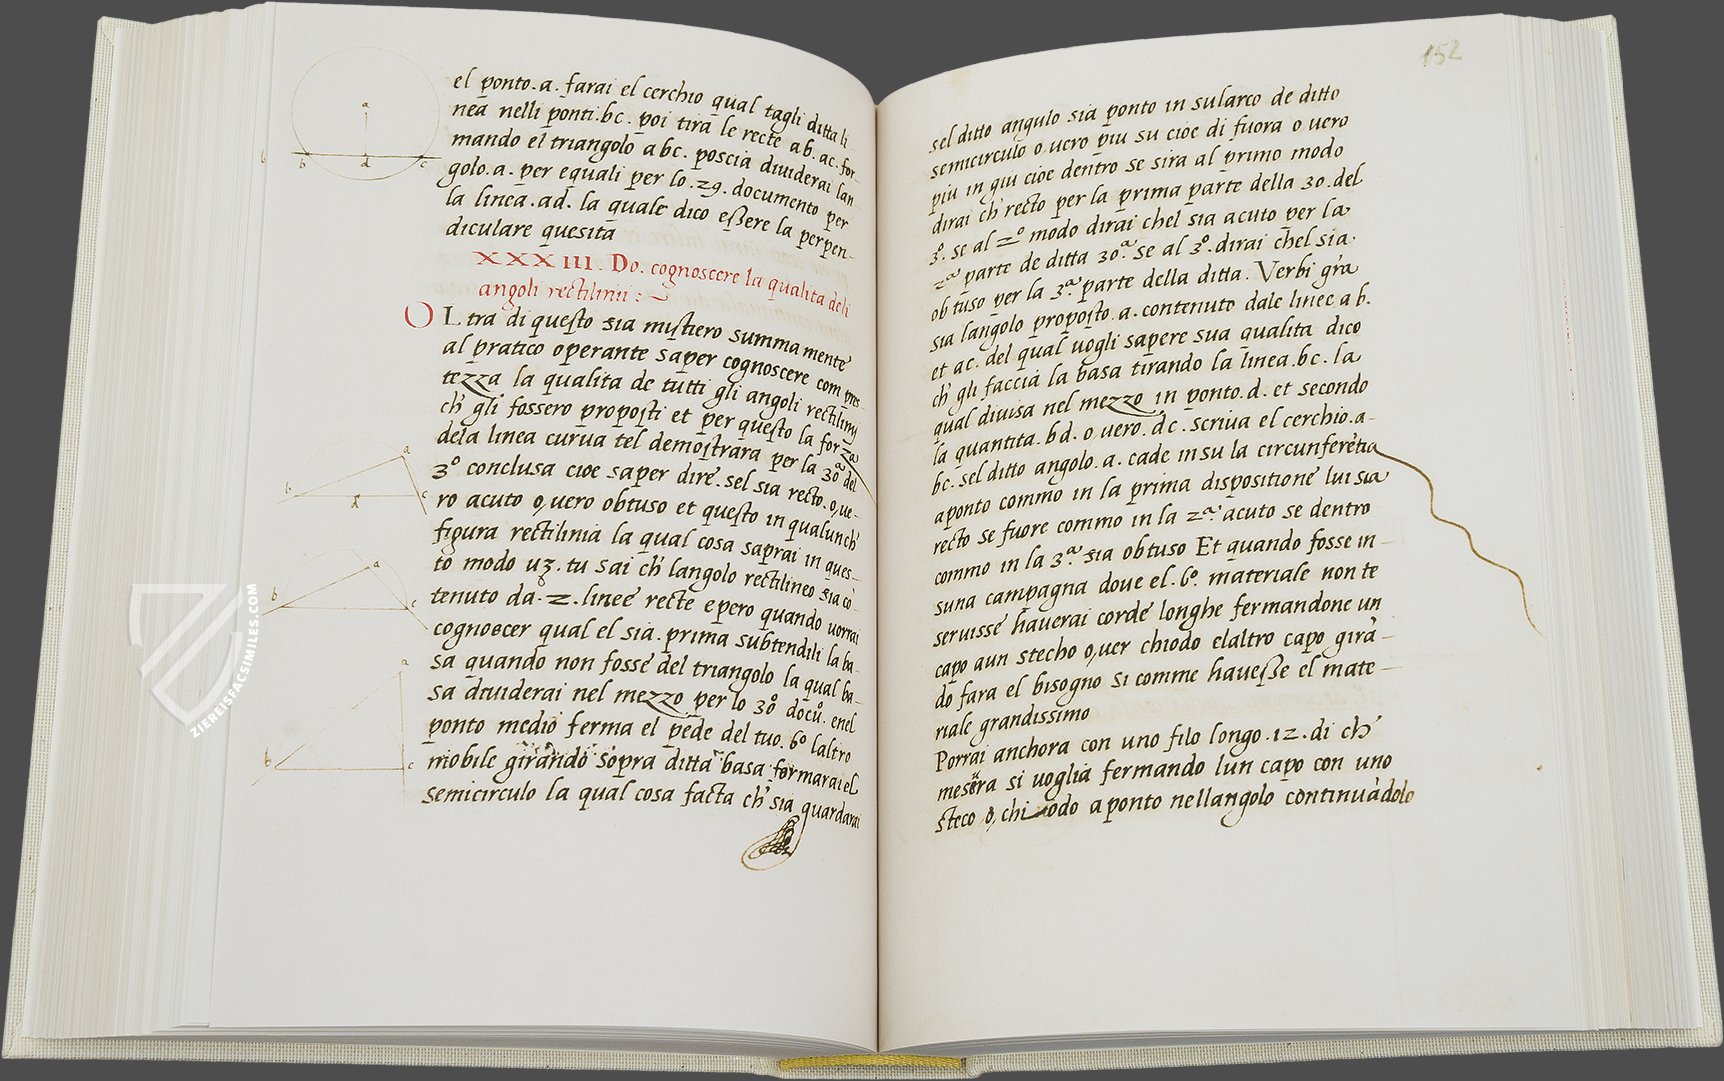 el ponto. a. farai el cerchio qual tagli ditta li
nea nelli ponti. bc. poi tira le recte ab. ac. for
mando el triangolo abc. poscia diuiderai lan
golo. a. per equali per lo. 29. documento per
la linea. ad. la quale dico eßere la perpen-
diculare quesita
XXXIII. Do. cognoscere la qualita deli
angoli rectilinii :~
OLtra di questo sia mistiero summamente
al pratico operante saper cognoscere com pres
tezza la qualita de tutti gli angoli rectilinij
ch' gli fossero proposti et per questo la forza
dela linea curua tel demostrara per la 30a del
3o conclusa cioe saper dire. sel sia recto. o, ue-
ro acuto o, uero obtuso et questo in qualunch'
figura rectilinia la qual cosa saprai in ques-
to modo uz. tu sai ch' langolo rectilineo sia cō
tenuto da. 2. linee recte epero quando uorrai
cognoscer qual el sia. prima subtendili la ba-
sa quando non fosse del triangolo la qual ba-
sa diuiderai nel mezzo per lo 30 docu. enel
ponto medio ferma el pede del tuo. 6o laltro
mobile girando sopra ditta basa formarai el
semicirculo la qual cosa facta ch' sia guardarai
a
b d c
a
b d c
a
b c
a
b c
ZIEREISFACSIMILES.COM
152
sel ditto angulo sia ponto in sularco de ditto
semicirculo o uero piu su cioe di fuora o uero
piu in giu cioe dentro se sira al primo modo
dirai ch' recto per la prima parte della 30. del
3o. se al 2o modo dirai chel sia acuto per la
2a parte de ditta 30a. se al 3o. dirai chel sia
obtuso per la 3a. parte della ditta. Verbi gra
sia langolo proposto. a. contenuto dale linee ab.
et ac. del qual uogli sapere sua qualita dico
ch' gli faccia la basa tirando la linea. bc. la
qual diuisa nel mezzo in ponto. d. et secondo
la quantita. bd. o uero. dc. scriua el cerchio. a-
bc. sel ditto angolo. a. cade in su la circunferētia
aponto commo in la prima dispositione lui sia
recto se fuore commo in la 2a. acuto se dentro
commo in la 3a sia obtuso Et quando fosse in-
suna campagna doue el. 6o. materiale non te
seruisse hauerai corde longhe fermandone un
capo aun stecho o, uer chiodo elaltro capo girā-
do fara el bisogno si comme haueße el mate-
riale grandissimo
Porrai anchora con uno filo longo. 12. di ch'
mesura si uoglia fermando lun capo con uno
steco o, chiodo aponto nellangolo continuādolo